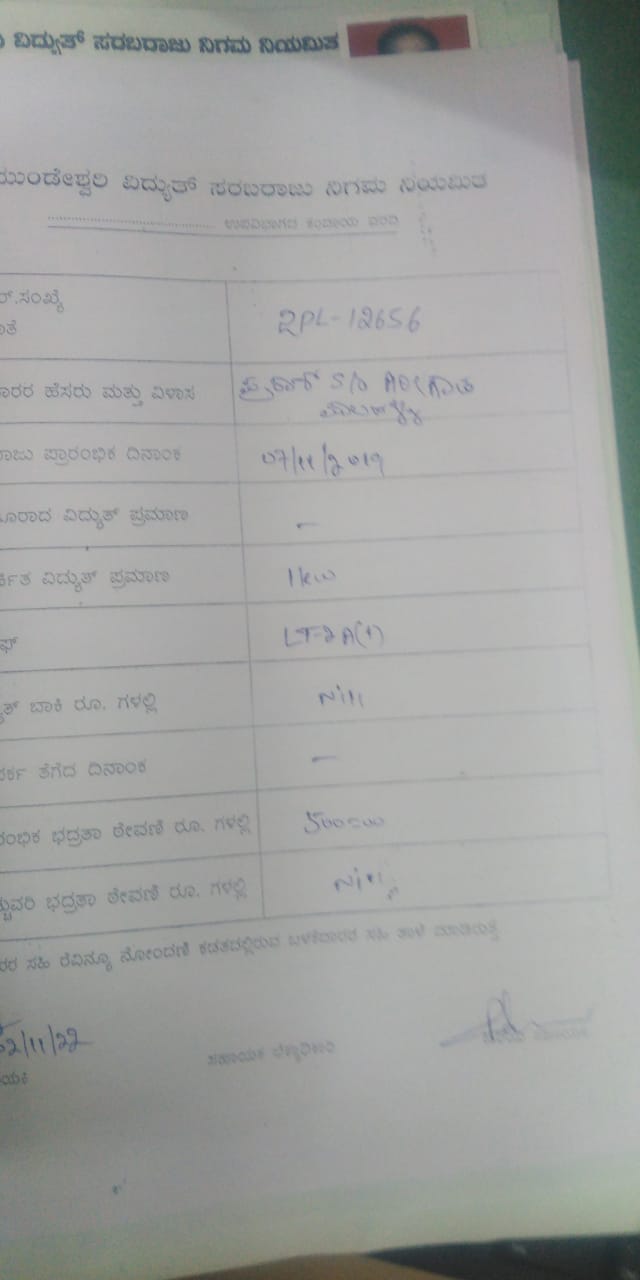 ವಿದ್ಯುತ್ ಸರಬರಾಜು ನಿಗಮ ನಿಯಮಿತ
ಮುಂಡೇಶ್ವರಿ ವಿದ್ಯುತ್ ಸರಬರಾಜು ನಿಗಮ ನಿಯಮಿತ
ಉಪವಿಭಾಗದ ಕಂದಾಯ ವರದಿ
ರ್.ಸಂಖ್ಯೆ
2PL-12656
ಾರರ ಹೆಸರು ಮತ್ತು ವಿಳಾಸ
S/o
ಾಜು ಪ್ರಾರಂಭಿಕ ದಿನಾಂಕ 07/11/2019
ೂರಾದ ವಿದ್ಯುತ್ ಪ್ರಮಾಣ –
ರ್ಕಿತ ವಿದ್ಯುತ್ ಪ್ರಮಾಣ 1kw
LT-2A(1)
ತ್ ಬಾಕಿ ರೂ. ಗಳಲ್ಲಿ Nill
ರ್ಕ ತೆಗೆದ ದಿನಾಂಕ –
ರಂಭಿಕ ಭದ್ರತಾ ಠೇವಣಿ ರೂ. ಗಳಲ್ಲಿ 500=00
ಚ್ಚುವರಿ ಭದ್ರತಾ ಠೇವಣಿ ರೂ. ಗಳಲ್ಲಿ Nill
ರರ ಸಹಿ ರೆವಿನ್ಯೂ ನೋಂದಣಿ ಕಡತದಲ್ಲಿರುವ ಬಳಕೆದಾರರ ಸಹಿ ತಾಳೆ ಮಾಡಿರುತ್ತೆ
02/11/22
ಯಕಿ
ಸಹಾಯಕ ಲೆಕ್ಕಾಧಿಕಾರಿ